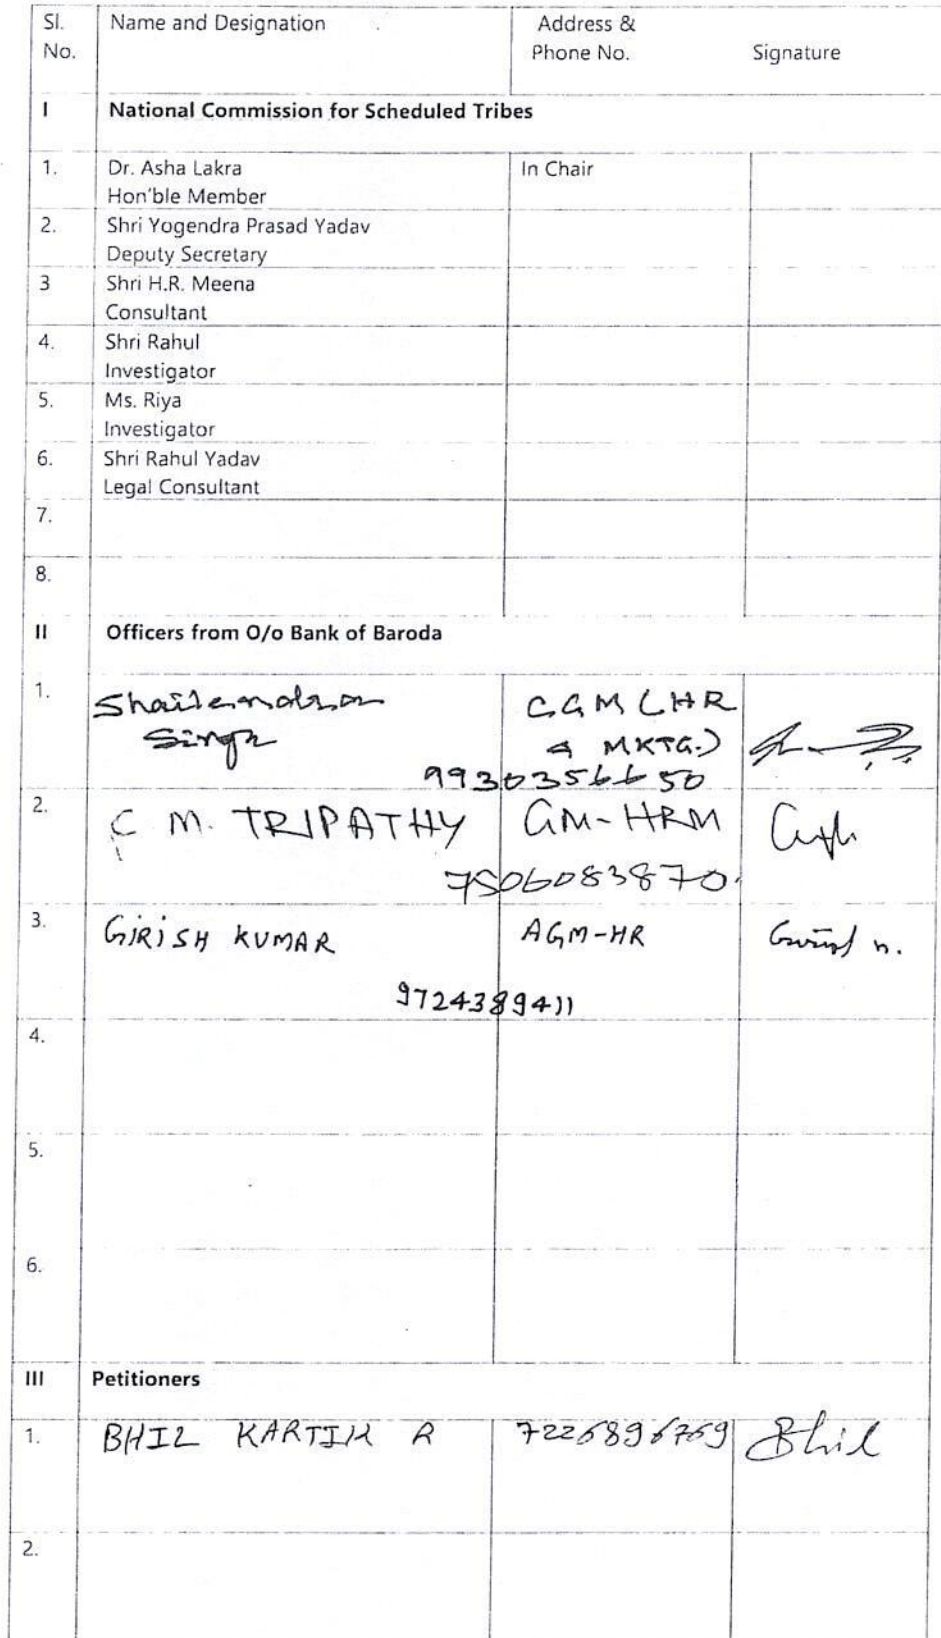 Sl. Name and Designation Address &
No. Phone No. Signature
I National Commission for Scheduled Tribes
1. Dr. Asha Lakra In Chair
Hon'ble Member
2. Shri Yogendra Prasad Yadav
Deputy Secretary
3 Shri H.R. Meena
Consultant
4. Shri Rahul
Investigator
5. Ms. Riya
Investigator
6. Shri Rahul Yadav
Legal Consultant
7.
8.
II Officers from O/o Bank of Baroda
1. Shailendra CGM (HR
Singh & MKTG.)
9930356650
2. C M. TRIPATHY GM-HRM
7506083870.
3. GIRISH KUMAR AGM-HR
9724389411
4.
5.
6.
III Petitioners
1. BHIL KARTIK R Bhil
2.